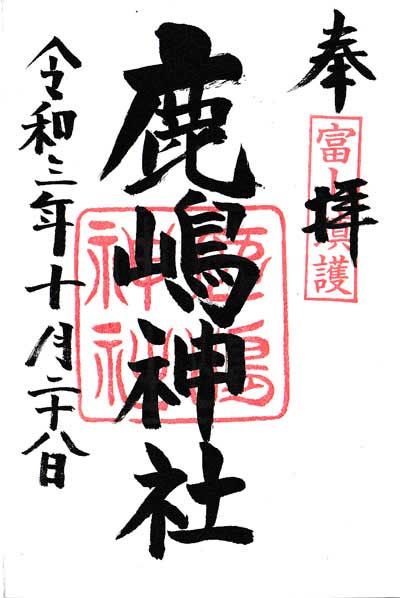 奉拝
鹿嶋神社
鹿嶋
神社
令和三年十月二十八日